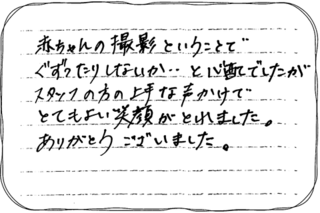 赤ちゃんの撮影ということで
ぐずったりしないか‥と心配でしたが
スタッフの方の上手な声かけで
とてもよい笑顔がとれました。
ありがとうございました。